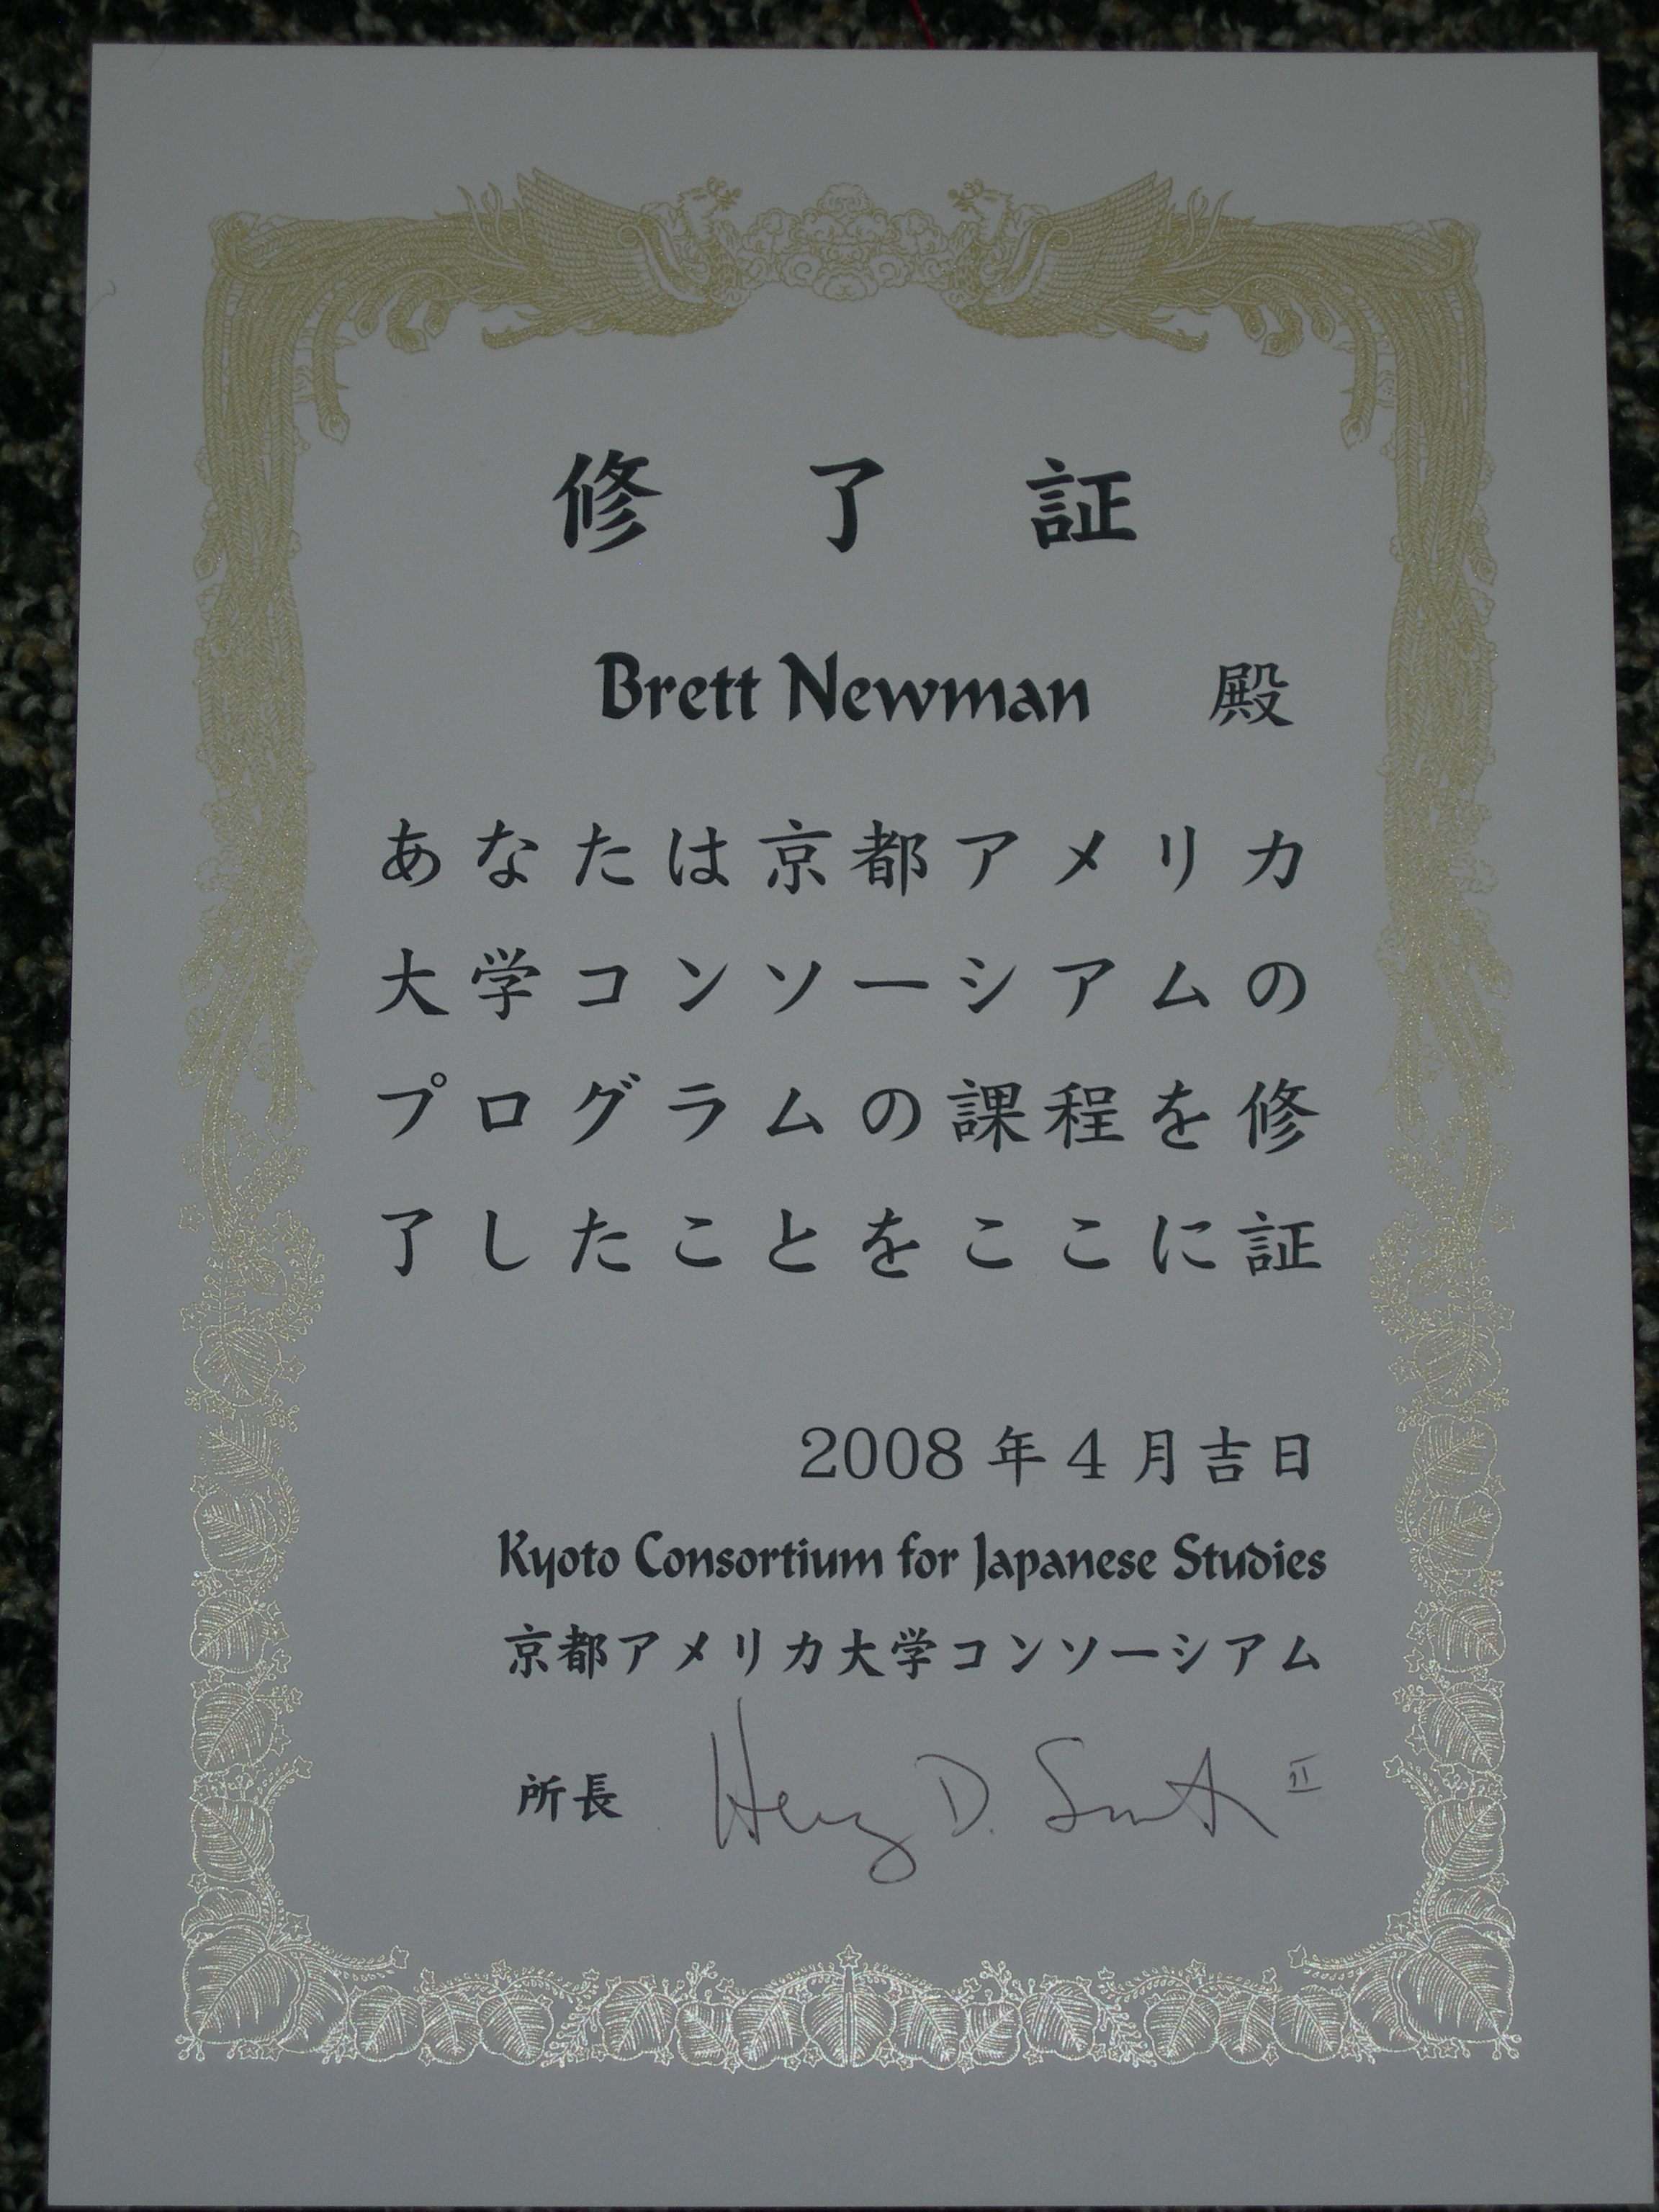 修了証
Brett Newman 殿
あなたは京都アメリカ
大学コンソーシアムの
プログラムの課程を修
了したことをここに証
2008年4月吉日
Kyoto Consortium for Japanese Studies
京都アメリカ大学コンソーシアム
所長 Henry D. Smith II